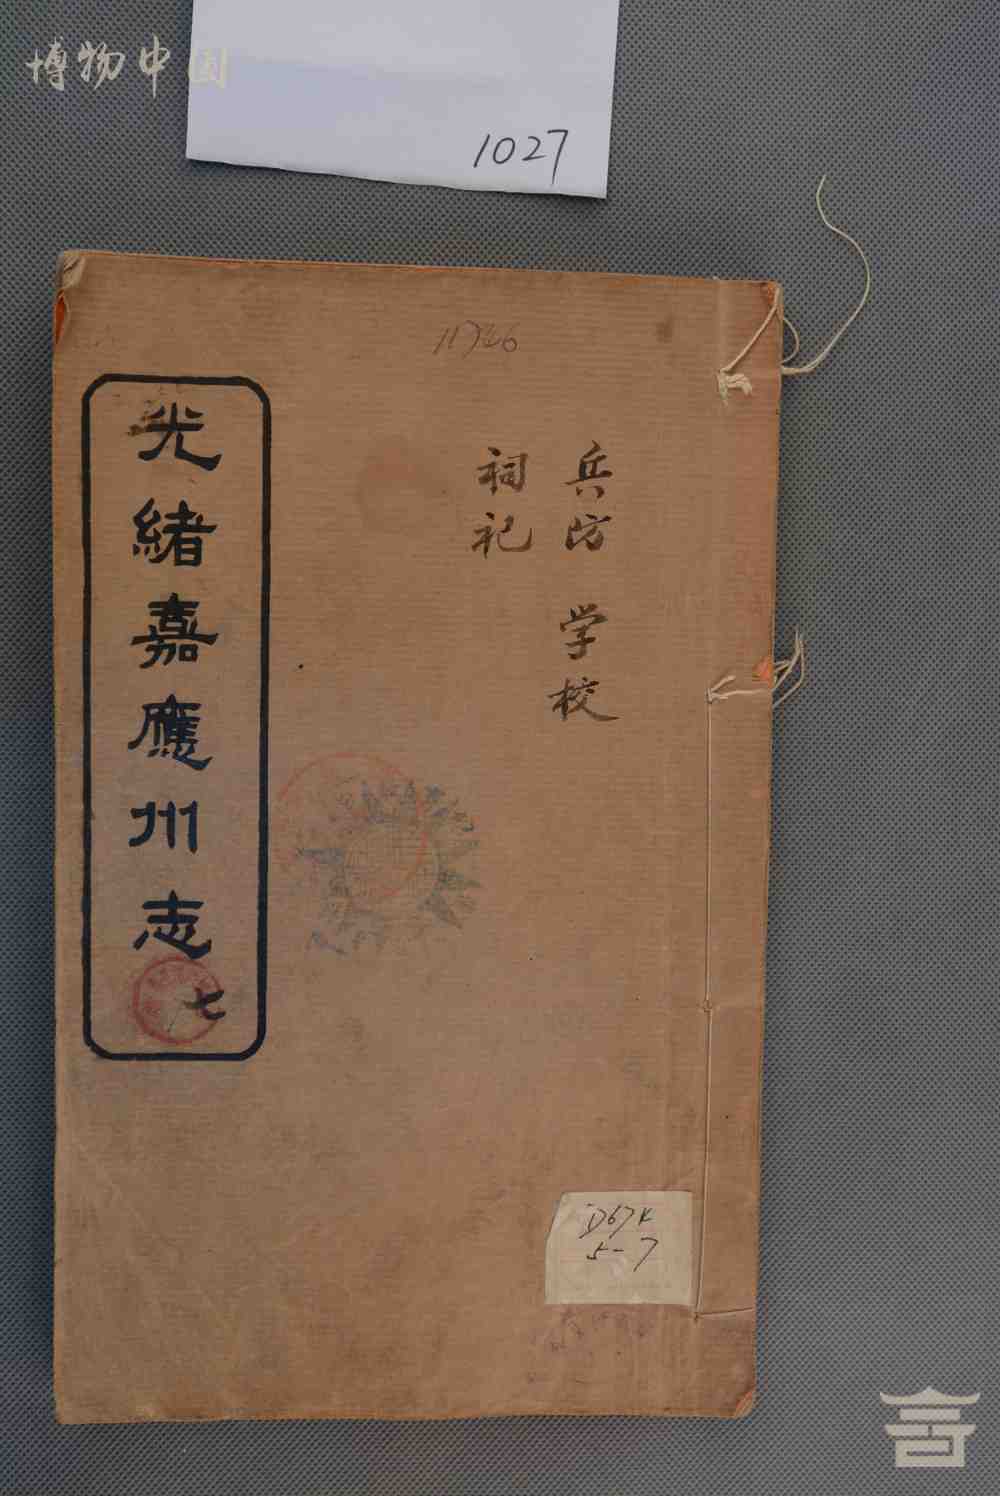 博物中国
1027
11746
兵防 学校
祠祀
光緒嘉應州志 七
D67K
5-7